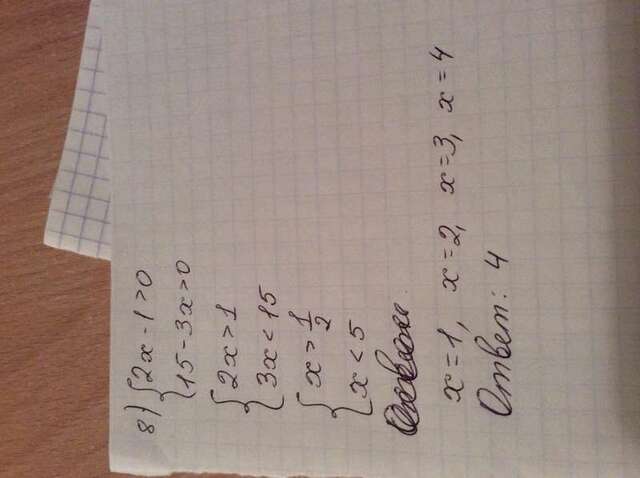 8) { 2x - 1 > 0
{ 15 - 3x > 0
{ 2x > 1
{ 3x < 15
{ x > 1/2
{ x < 5
x = 1, x = 2, x = 3, x = 4
Ответ: 4